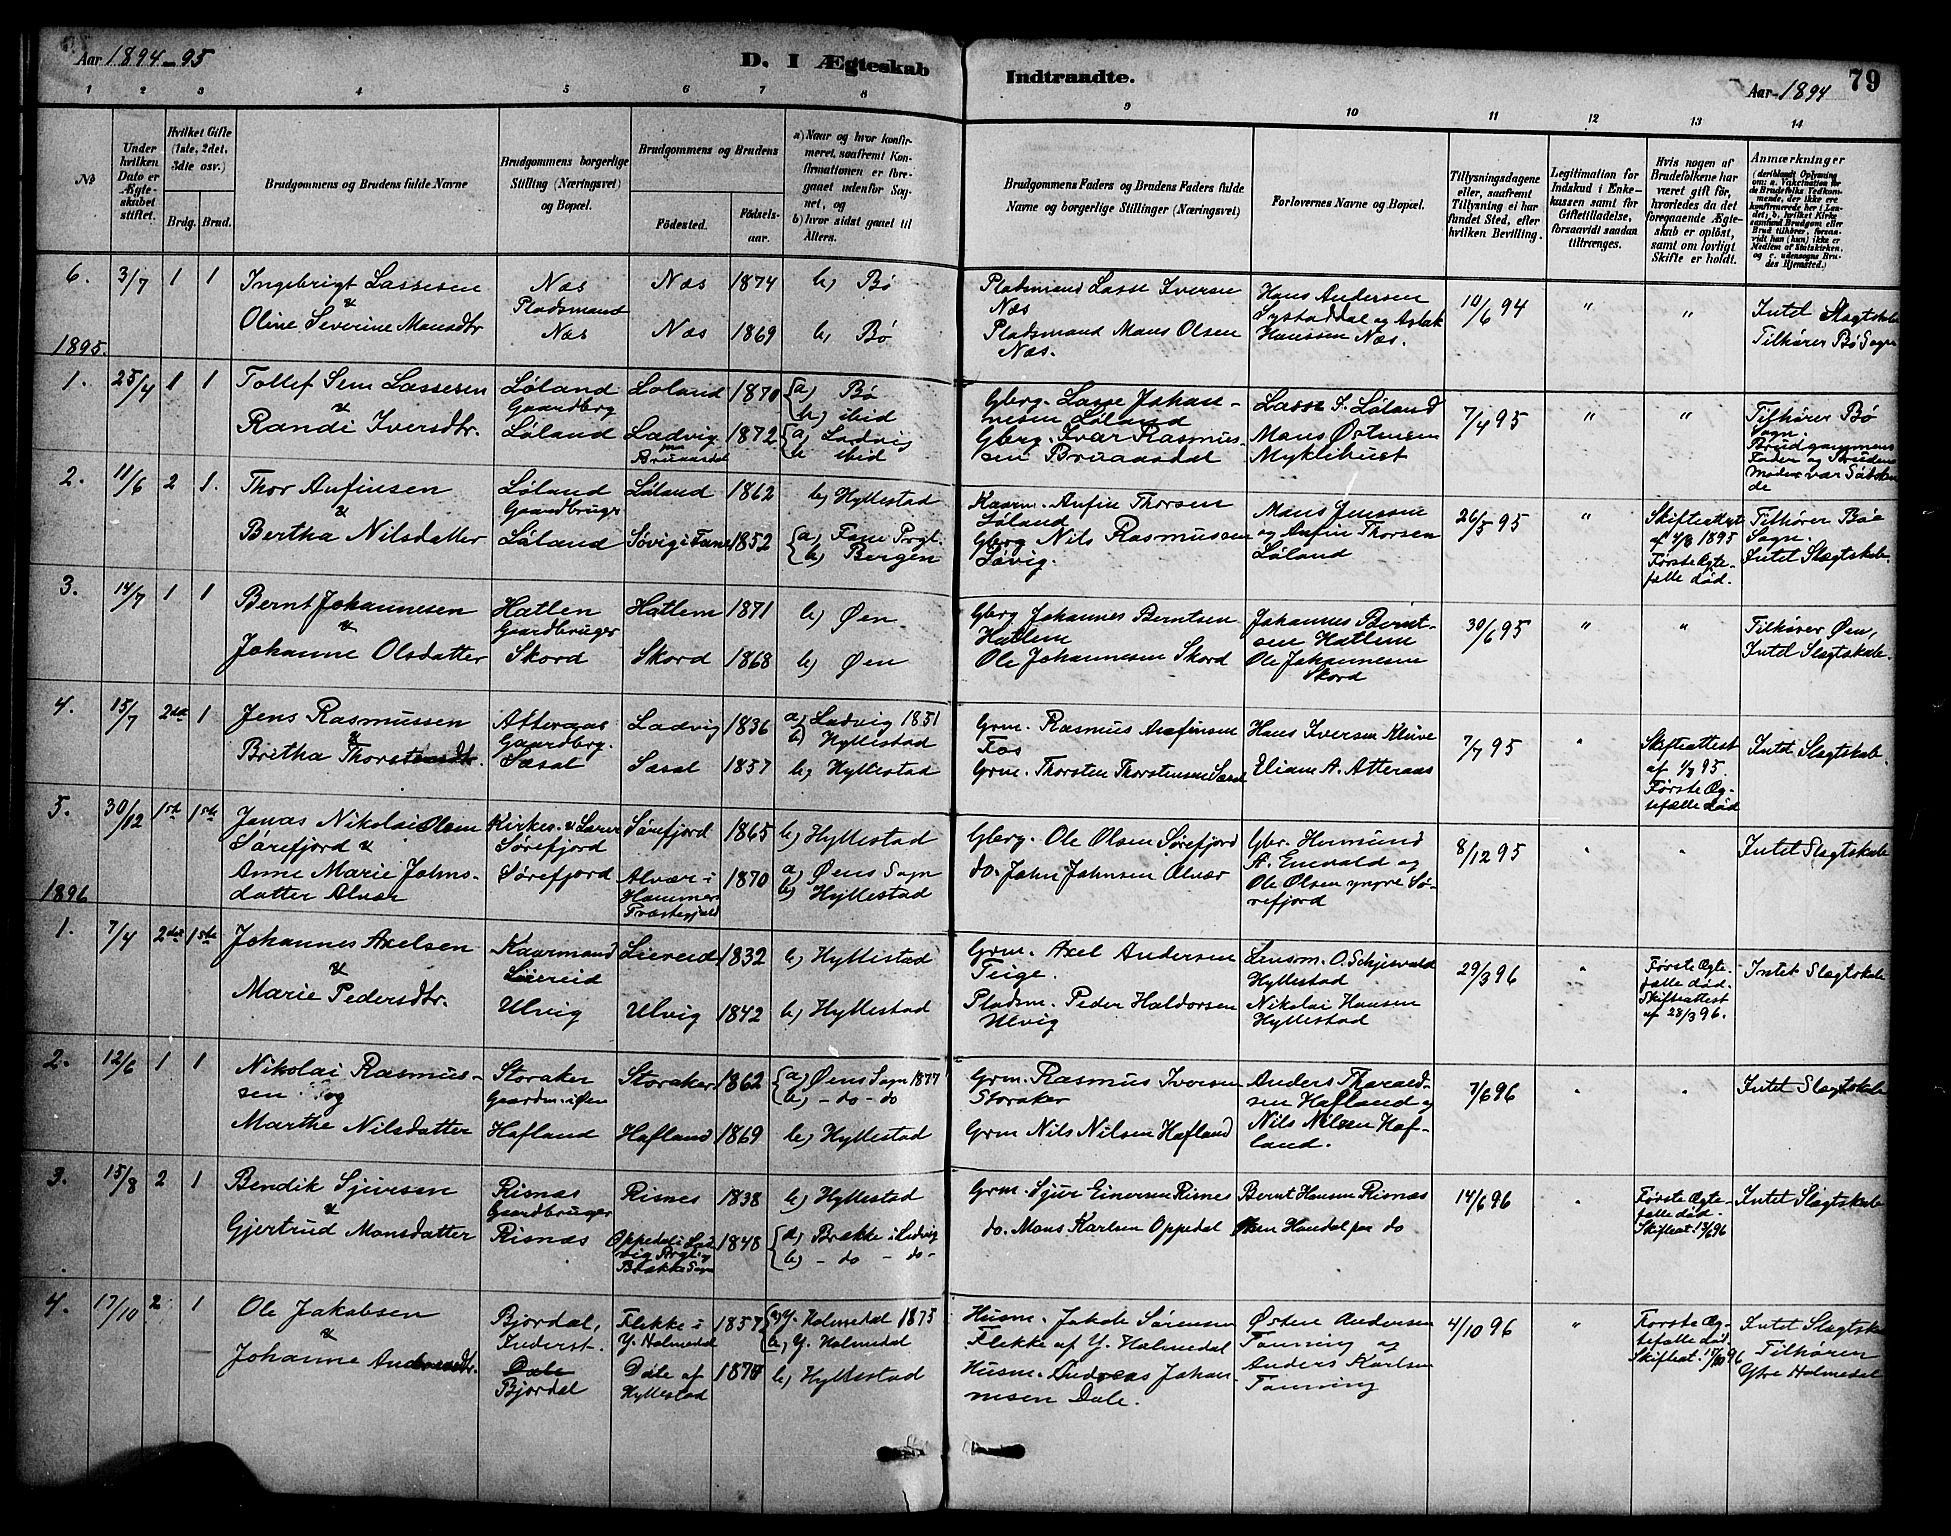 Aar 1894-95
D. I Ægteskab
Indtraadte.
Aar 1894
79
1 2 3 4 5 6 7 8 9 10 11 12 13 14
No
Under hvilken Dato er Ægteskabet stiftet.
Hvilket Gifte (1ste, 2det, 3die osv.)
Brdg. Brud.
Brudgommens og Brudens fulde Navne
Brudgommens borgerlige Stilling (Næringsvei) og Bopæl.
Brudgommens og Brudens
Fødested.
Fødselsaar.
a) Naar og hvor konfirmeret, saafremt Konfirmationen er foregaaet udenfor Sognet, og
b) hvor sidst gaaet til Alters.
Brudgommens Faders og Brudens Faders fulde Navne og borgerlige Stillinger (Næringsvei)
Forlovernes Navne og Bopæl.
Tillysningsdagene eller, saafremt Tillysning ei har fundet Sted, efter hvilken Bevilling.
Legitimation for Indskud i Enkekassen samt for Giftetilladelse, forsaavidt saadan tiltrænges.
Hvis nogen af Brudefolkene har været gift før, hvorledes da det foregaaende Ægteskab er opløst, samt om lovligt Skifte er holdt.
Anmærkninger
(deriblandt Oplysning om: a. Vakcination for de Brudefolks Vedkommende, der ikke ere konfirmerede her i Landet; b. hvilket Kirkesamfund Brudgom eller Brud tilhører, forsaavidt han (hun) ikke er Medlem af Statskirken, og c. udensogns Brudes Hjemsted.)
6. 3/7 1 1 Ingebrigt Lassesen
&
Oline Severine Monsdtr
Næs
Pladsmand
Næs
Næs 1874 b) Bø
Næs 1869 b) Bø
Pladsmand Lasse Iversen
Næs
Pladsmand Mons Olsen
Næs.
Hans Andersen
Systaddal og Aslak
Hanssen Næs.
10/6 94 " "
Intet Slægtskab
Tilhører Bø Sogn
1895.
1. 25/4 1 1 Tollef Sem Lassesen
&
Randi Iversdtr.
Løland
Gaardbrg
Løland
Løland 1870 {a) Bø
b) ibid
Ladvig
Bruaasdal 1872 {a) Ladvig
b ibid
Gbrg. Lasse Johan-
nesen Løland
Gbrg. Ivar Rasmus-
sen Bruaasdal
Lasse J. Løland
Mons Østensen
Myklebust
7/4 95 " "
Tilhører Bø
Sogn
Brudgommens
Fader og Brudens
Moder var Søsken
de
2. 11/6 2 1. Thor Anfinsen
&
Bertha Nilsdatter
Løland
Gaardbruger
Løland
Løland 1862 b) Hyllestad
Søvig i Fane 1852 {a) Fane Prgl.
b) Bergen
Kaarm. Anfin Thorsen
Løland
Gbrg Nils Rasmussen
Søvig.
Mons Jenssen
og Anfin Thorsen
Løland
26/5 95 "
Skifteattest
af 4/3 1895
Første Ægte-
fælle død.
Tilhører Bøe
Sogn.
Intet Slægtskab.
3. 14/7 1 1 Bernt Johannesen
&
Johanne Olsdatter
Hatlen
Gaardbruger
Skord
Hatlem 1871 b) Øen
Skord 1868 b) Øen
Gbrg Johannes Berntsen
Hatlem
Ole Johannesen Skord
Johannes Bernt-
sen Hatlem
Ole Johannesen
Skord
30/6 95 " "
Tilhører Øen,
Intet Slægtskab.
4. 15/7 2det 1 Jens Rasmussen
&
Britha Thorstensdtr.
Atteraas
Gaardbrg.
Sæsal
Ladvig 1836 a) Ladvig 1851
b) Hyllestad
Sæsal 1857 b) Hyllestad
Grm. Rasmus Anfinsen
Fos
Grm. Thorsten Thorstensen Sæsal
Hans Iversen Kleive
Eliam A. Atteraas
7/7 95 "
Skifteattest
af 1/7 95.
Første Æg-
tefælle død
Intet Slægtskab.
5. 30/12 1ste 1ste Jonas Nikolai Olsen
Sørefjord &
Anne Marie Johns-
datter Alvær
Kirkes. & Lærer
Sørefjord
Sørefjord
Sørefjord 1865 b) Hyllestad
Alvær i
Hammer
Præstegjeld 1870 a) Øens Sogn
b) Hyllestad
Gbrg. Ole Olsen Sørefjord
do. John Johnsen Alvær
Gbr. Hermund
A. Enevald og
Ole Olsen yngre Sø-
refjord
8/12 95 " "
Intet Slægtskab
1896
1. 7/4 2det 1ste Johannes Axelsen
&
Marie Pedersdtr.
Kaarmand
Liereid
Ulvig
Liereid 1832 b) Hyllestad
Ulvig 1842 b) Hyllestad
Grm. Axel Andersen
Teige.
Pladsm. Peder Haldorsen
Ulvig
Lensm. O. Schjesvald
Hyllestad
Nikolai Hansen
Hyllestad
29/3 96 "
Første Ægte-
fælle død.
Skifteattest
af 28/3 96.
Intet Slægtskab
2. 12/6 1 1 Nikolai Rasmus-
sen og
Marthe Nilsdatter
Storaker
Gaardm. i Øen
Hafland
Storaker 1862 {a) Øens Sogn 1877
b) - do - do
Hafland 1869 b) Hyllestad
Grm. Rasmus Iversen
Storaker
Grm Nils Nilsen Hafland
Anders Tharald-
sen Hafland og
Nils Nilsen Haf-
land.
7/6 96 " "
Intet Slægtskab
3. 15/8 2 1 Bendik Sjursen
&
Gjertrud Monsdatter
Risnæs
Gaardbruger
Risnæs
Risnes 1838 b) Hyllestad
Oppedal i Lad
vig Prgl. og
Brække Sogn 1848 {a) Brække i Ladvig
b) - do - do -
Grm. Sjur Einersen Risnes
do. Mons Karlsen Oppedal
Bernt Hansen Risnæs
Øien Handel paa do
14/6 96 "
Første Ægte-
fælle død.
Skifteat. 13/6 96
Intet Slægtskab
4. 17/10 2 1 Ole Jakobsen
&
Johanne Andreasdtr.
Bjordal,
Inderst.
Dale
Bjordal
Flekke i
Y. Holmedal 1857 {a) Y. Holmedal 1873
b) Y. Holmedal
Dale af
Hyllestad 1870 b) Hyllestad
Husm. Jakob Sørensen
Flekke af Y. Holmedal
Husm. Andreas Johan-
nesen Dale.
Østen Andersen
Tonning og
Anders Karlsen
Tonning
4/10 96 "
Første Æg-
tefælle død.
Skifteat. 17/10 96
Intet Slægtskab
Tilhører
Ytre Holmedal